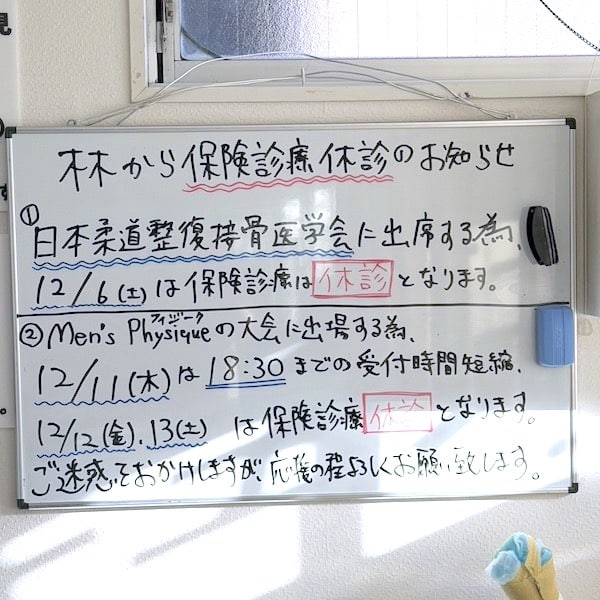 林から保険診療休診のお知らせ
①
日本柔道整復接骨医学会に出席する為、
12/6(土)は保険診療は休診となります。
フィジーク
②Men's Physiqueの大会に出場する為、
12/11(木)は18:30までの受付時間短縮、
12/12(金).13(土)は保険診療休診となります。
ご迷惑をおかけしますが、応援の程よろしくお願い致します。